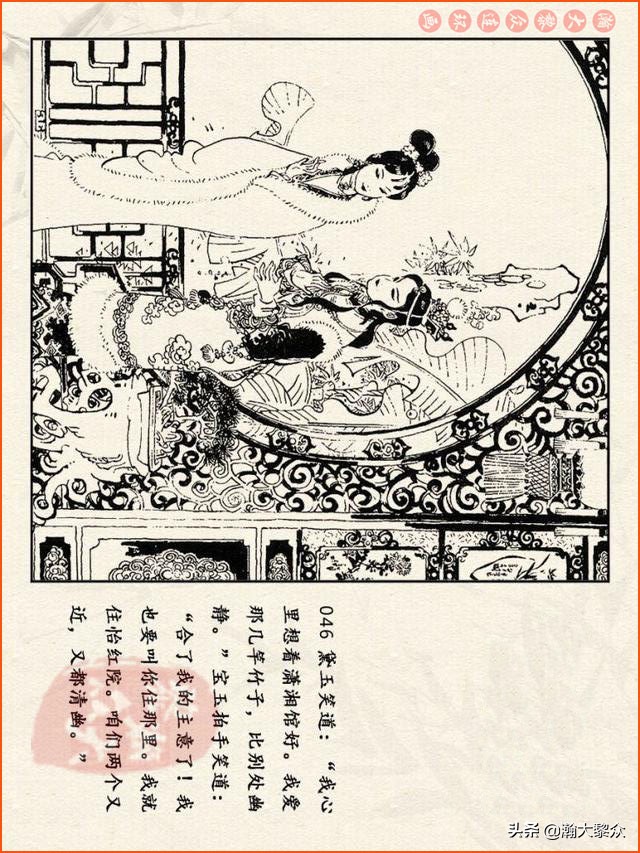 瀚大黎众连环画
046 黛玉笑道：“我心
里想着潇湘馆好。我爱
那几竿竹子，比别处幽
静。”宝玉拍手笑道：
“合了我的主意了！我
也要叫你住那里。我就
住怡红院。咱们两个又
近，又都清幽。”
头条 @瀚大黎众